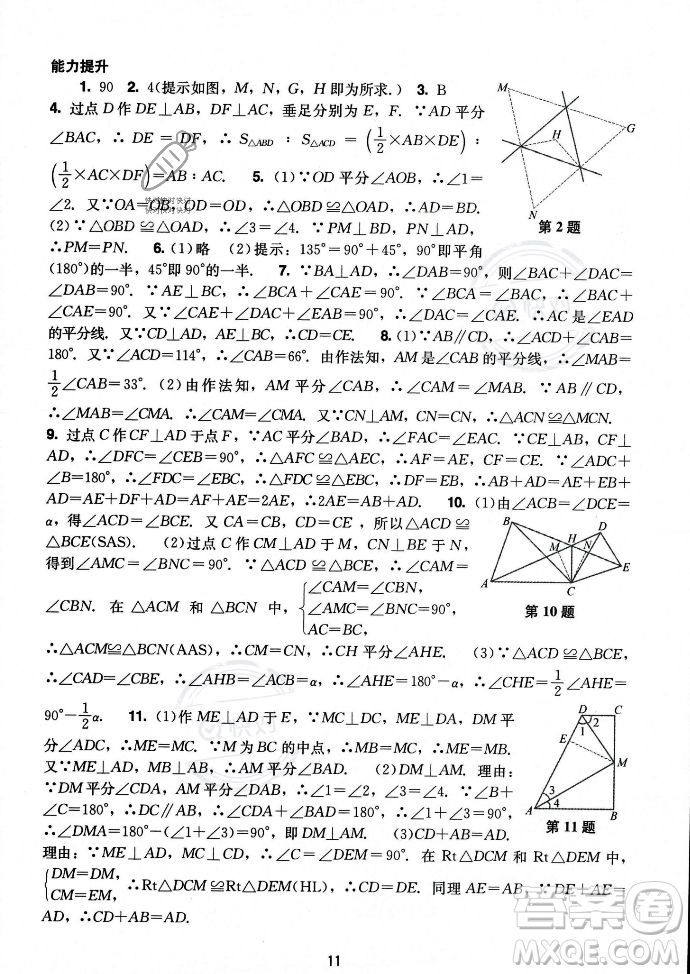 能力提升
1. 90  2. 4(提示如图，M，N，G，H 即为所求.)  3. B
4. 过点 D 作 DE⊥AB，DF⊥AC，垂足分别为 E，F. ∵AD 平分
∠BAC，∴DE = DF，∴S△ABD : S△ACD = (1/2×AB×DE) :
(1/2×AC×DF)=AB : AC.  5. (1)∵OD 平分∠AOB，∴∠1=
∠2. 又∵OA=OB，OD=OD，∴△OBD≌△OAD，∴AD=BD.
(2)∵△OBD≌△OAD，∴∠3=∠4. ∵PM⊥BD，PN⊥AD，
∴PM=PN.  6. (1)略  (2)提示：135°=90°+45°，90°即平角
(180°)的一半，45°即 90°的一半.  7. ∵BA⊥AD，∴∠BAD=90°，则∠BAC+
∠DAB=90°. ∵AE⊥BC，∴∠BCA+∠CAE=90°. ∵AB=BC，∴∠BCA=∠BAC，
∴∠BAC+∠CAE=90°. 又∵∠CAE+∠DAB=90°，∴∠CAE=∠CAD，∴AC 是∠EAD
的平分线. 又∵CD⊥AD，AE⊥BC，∴CD=CE.  8. (1)∵AB∥CD，∴∠ACD+∠CAB=
180°. 又∵∠ACD=114°，∴∠CAB=66°. 由作法知，AM 是∠CAB 的平分线，∴∠MAB=
1/2∠CAB=33°. (2)由作法知，AM 平分∠CAB，∴∠CAM=∠MAB. 又∵AB∥CD，
∴∠MAB=∠CMA，∴∠CAM=∠CMA. 又∵CN⊥AM，CN=CN，∴△ACN≌△MCN.
9. 过点 C 作 CF⊥AD 于点 F，∵AC 平分∠BAD，∴∠FAC=∠EAC. ∵CE⊥AB，CF⊥
AD，∴∠DFC=∠CEB=90°，∴△AFC≌△AEC，∴AF=AE，CF=CE. ∵∠ADC+
∠B=180°，∴∠FDC=∠EBC，∴△FDC≌△EBC，∴DF=EB，∴AB+AD=AE+EB+
AD=AE+DF+AD=AF+AE=2AE，∴2AE=AB+AD.  10. (1)由∠ACB=∠DCE=
α，得∠ACD=∠BCE. 又∵CA=CB，CD=CE，∴△ACD≌
△BCE(SAS).  (2)过点 C 作 CM⊥AD 于 M，CN⊥BE 于 N，
得到∠AMC=∠BNC=90°. ∵△ACD≌△BCE，∴∠CAM=
∠CBN. 在 △ACM 和 △BCN 中，{∠CAM=∠CBN，
∠AMC=∠BNC=90°，
AC=BC，
∴△ACM≌△BCN(AAS)，∴CM=CN，∴CH 平分∠AHE.  (3)∵△ACD≌△BCE，
∴∠CAD=∠CBE，∴∠AHB=∠ACB=α，∴∠AHE=180°-α，∴∠CHE=1/2∠AHE=
90°-1/2α.  11. (1)作 ME⊥AD 于 E，∵MC⊥DC，ME⊥DA，DM 平
分∠ADC，∴ME=MC. ∵M 为 BC 的中点，∴BM=MC=ME.
又∵ME⊥AD，MB⊥AB，∴AM 平分∠DAB.  (2)AM⊥DM. 理由：
∵DM 平分∠CDA，AM 平分∠DAB，∴∠1=∠2，∠3=∠4. ∵∠B+
∠C=180°，∴DC∥AB，∴∠CDA+∠BAD=180°，∴∠1+∠3=90°，
∴∠DMA=180°-(∠1+∠3)=90°，即 DM⊥AM.  (3)CD+AB=AD.
理由：∵ME⊥AD，MC⊥CD，∴∠C=∠DEM=90°. 在 Rt△DCM 和 Rt△DEM 中，
{DM=DM，
EM=CM，∴Rt△DCM≌Rt△DEM(HL)，∴CD=DE. 同理 AE=AB，∵AE+DE=AD，
∴CD+AB=AD.
M
G
H
N
第 2 题
B
H
D
M
N
E
A
C
第 10 题
D
C
2
1
E
M
3
4
A
B
第 11 题
快对快对快对
快对快对快对
答案圈
MXQE.COM
11